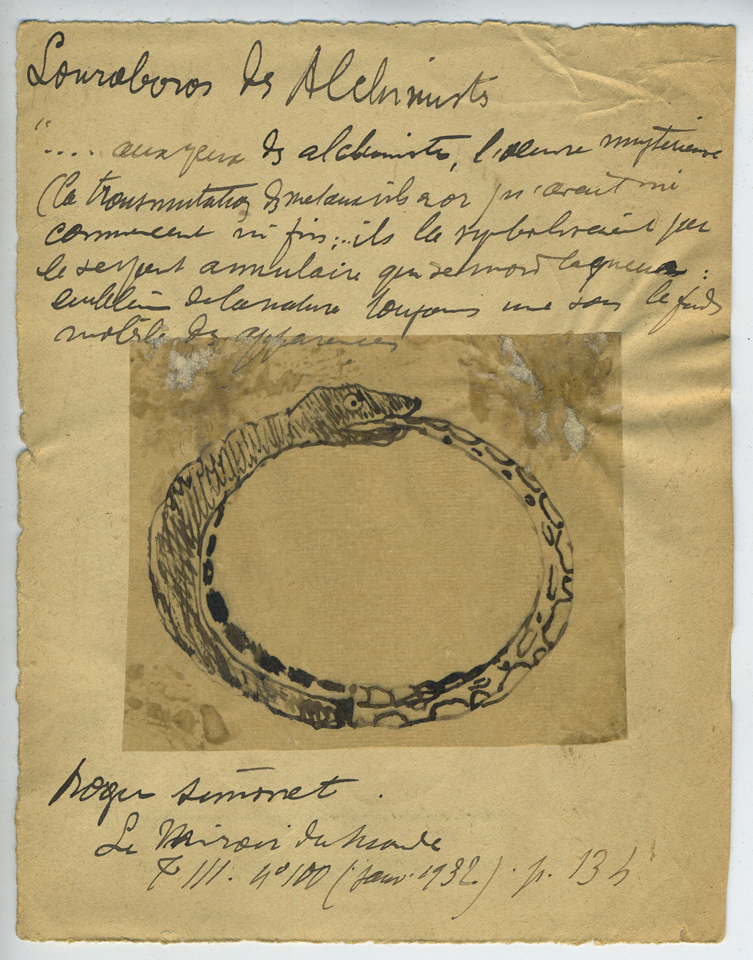 L'ouraboros des Alchimists
".... aux yeux des alchimistes, l'œuvre mystérieuse
(la transmutation des metaux vils en or) n'avait ni
commencement ni fin; ..ils la symbolisaient par
le serpent annulaire qui se mord la queue :
emblème de la nature toujours une sous le fonds
mobile des apparences
Roger Simonet .
Le Miroir du Monde
T III. n° 100 (janv. 1932). p. 134